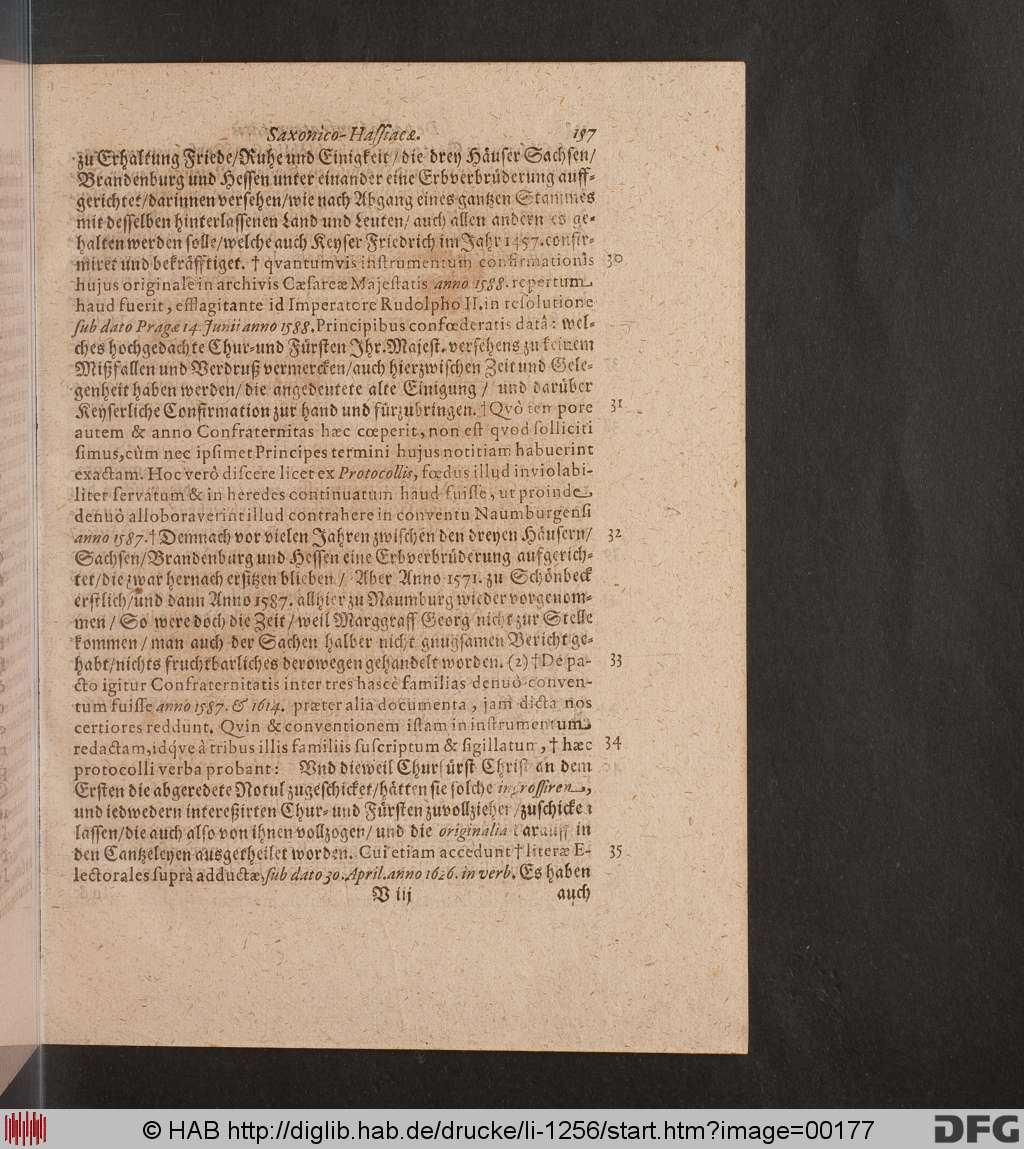 Saxonico-Hassiacæ. 157
zu Erhaltung Friede/Ruhe und Einigkeit/die drey Häuser Sachsen/
Brandenburg und Hessen unter einander eine Erbverbrüderung auff-
gerichtet/darinnen versehen/wie nach Abgang eines gantzen Stammes
mit desselben hinterlassenen Land und Leuten/ auch allen andern es ge-
halten werden solle/welche auch Keyser Friedrich im Jahr 1457. confir-
miret und bekräfftiget. † qvantumvis instrumentum confirmationis 30
hujus originale in archivis Cæsareæ Majestatis anno 1588. repertum
haud fuerit, efflagitante id Imperatore Rudolpho II. in resolutione
sub dato Pragæ 14. Junii anno 1588. Principibus confœderatis datâ: wel-
ches hochgedachte Chur-und Fürsten Ihr. Majest. versehens zu keinem
Mißfallen und Verdruß vermercken/auch hierzwischen Zeit und Gele-
genheit haben werden/die angedeutete alte Einigung / und darüber
Keyserliche Confirmation zur hand und fürzubringen. † Qvò tempore 31
autem & anno Confraternitas hæc cœperit, non est qvod solliciti
simus, cùm nec ipsimet Principes termini hujus notitiam habuerint
exactam. Hoc verò discere licet ex Protocollis, fœdus illud inviolabi-
liter servatum & in heredes continuatum haud fuisse, ut proinde
denuò alloboraverint illud contrahere in conventu Naumburgensi
anno 1587. † Demnach vor vielen Jahren zwischen den dreyen Häusern/ 32
Sachsen/Brandenburg und Hessen eine Erbverbrüderung aufgerich-
tet/die zwar hernach ersitzen blieben/ Aber Anno 1571. zu Schönbeck
erstlich/und dann Anno 1587. allhier zu Naumburg wieder vorgenom-
men / So were doch die Zeit/weil Marggraff Georg nicht zur Stelle
kommen/man auch der Sachen halber nicht gnugsamen Bericht ge-
habt/nichts fruchtbarliches derowegen gehandelt worden. (2) † De pa- 33
cto igitur Confraternitatis inter tres hasce familias denuò conven-
tum fuisse anno 1587. & 1614. præter alia documenta, jam dicta nos
certiores reddunt. Qvin & conventionem istam in instrumentum
redactam, idqve à tribus illis familiis suscriptum & sigillatum, † hæc 34
protocolli verba probant: Vnd dieweil Churfürst Christ an dem
Ersten die abgeredete Notul zugeschicket/hätten sie solche ingrossiren,
und iedwedern intereßirten Chur- und Fürsten zuvollziehen/zuschicken
lassen/die auch also von ihnen vollzogen/ und die originalia darauff in
den Cantzeleyen ausgetheilet worden. Cui etiam accedunt † literæ E- 35
lectorales suprà adductæ, sub dato 30. April. anno 1626. in verb. Es haben
V iij auch
© HAB http://diglib.hab.de/drucke/li-1256/start.htm?image=00177
DFG